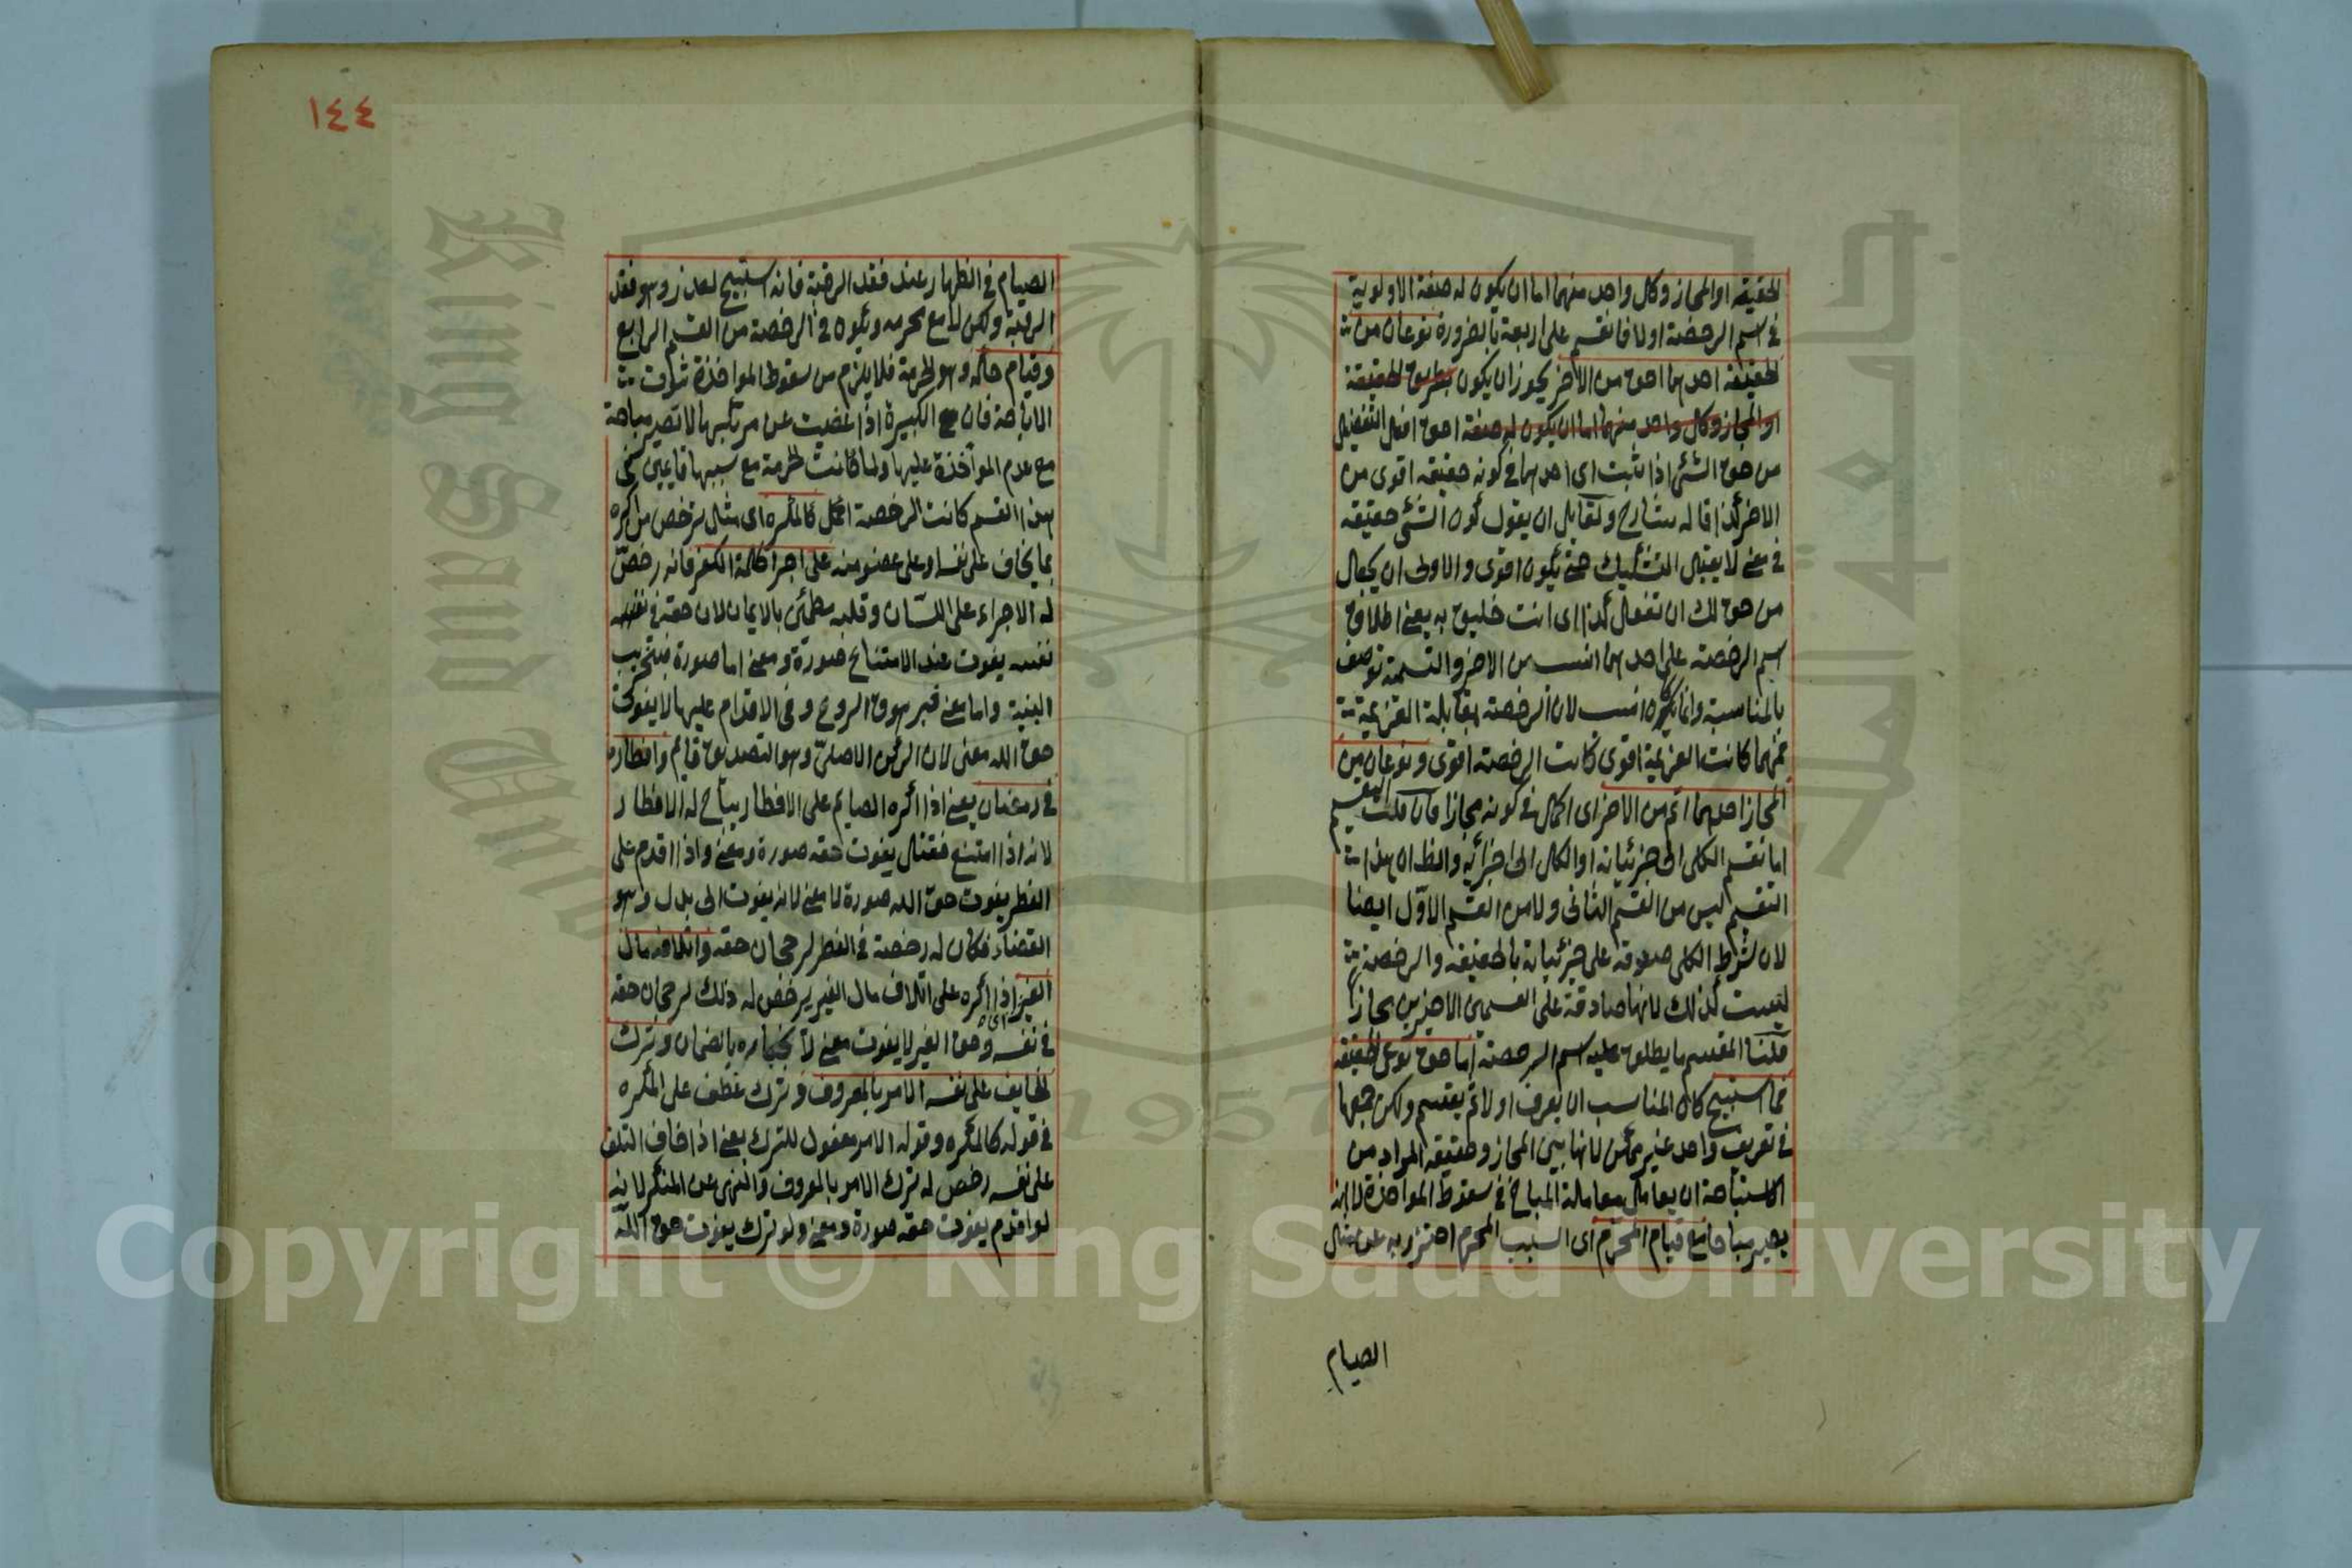 الحقيقة او المجاز وكل واحد منهما اما ان يكون له صفة الاولوية
في اسم الرخصة اولا فانقسم على اربعة بالضرورة نوعان من
الحقيقة احدهما احق من الاخر يجوز ان يكون بطريق الحقيقة
او المجاز وكل واحد منهما اما ان يكون له صفة احق افعل التفضيل
من حق الشئ اذا ثبت اى احدهما في كونه حقيقة اقوى من
الاخر كذا قاله شارح ولقايل ان يقول كون الشئ حقيقة
في معنى لا يقبل التشكيك حتى يكون اقوى والاولى ان يجعل
من حق لك ان تفعل كذا اى انت خليق به يعنى اطلاق
اسم الرخصة على احدهما انسب من الاخر والتسمية توصف
بالمناسبة وانما يكون انسب لان الرخصة بمقابلة العزيمة
فمهما كانت العزيمة اقوى كانت الرخصة اقوى ونوعان من
المجاز احدهما اتم من الاخر اى اكمل في كونه مجازا فان قلت التقسيم
اما تقسيم الكلى الى جزئياته او الكل الى اجزائه والظ ان هذا
التقسيم ليس من القسم الثانى ولا من القسم الاول ايضا
لان شرط الكلى صدقه على جزئياته بالحقيقة والرخصة
ليست كذلك لانها صادقة على القسمين الاخيرين مجازا
قلنا المقسم ما يطلق عليه اسم الرخصة اما احق نوعى الحقيقة
فما استبيح كان المناسب ان يعرف اولا ثم يقسم ولكن جمعها
في تعريف واحد غير ممكن لانها بين المجاز وحقيقة المراد من
الاستباحة ان يعامل معاملة المباح في سقوط المواخذة لا انه
يصير مباحا مع قيام المحرم اى السبب المحرم احترز به عن مثل
الصيام
١٤٤
الصيام في الظهار عند فقد الرقبة فانه استبيح لعذر وهو فقد
الرقبة ولكن لا مع محرمه ويكون في الرخصة من القسم الرابع
وقيام حكمه وهو الحرمة فلا يلزم من سقوط المواخذة ثبوت
الاباحة فان الكبيرة اذا عفيت عن مرتكبها لا تصير مباحة
مع عدم المواخذة عليها ولما كانت الحرمة مع سببها قايمين في
هذا القسم كانت الرخصة اكمل كالمكره اى مثل ترخص من اكره
بما يخاف على نفسه او على عضو منه على اجرا كلمة الكفر فانه رخص
له الاجراء على اللسان وقلبه مطمئن بالايمان لان حقه في نفسه
نفسه يفوت عند الامتناع صورة ومعنى اما صورة فبتخريب
البنية واما معنى فبزهوق الروح وفى الاقدام عليها لا يفوت
حق الله معنى لان الركن الاصلى وهو التصديق قايم وافطاره
في رمضان يعنى اذا اكره الصايم على الافطار يباح له الافطار
لانه اذا امتنع فقتل يفوت حقه صورة ومعنى واذا اقدم على
الفطر يفوت حق الله صورة لا معنى لانه يفوت الى بدل وهو
القضاء فكان له رخصة في الفطر لرجحان حقه واتلافه مال
الغير اذا اكره على اتلاف مال الغير يرخص له ذلك لرجحان حقه
في نفسه وحق الغير لا يفوت معنى لانجباره بالضمان وترك
الخايف على نفسه الامر بالمعروف وترك عطف على المكره
في قوله كالمكره وقوله الامر مفعول للترك يعنى اذا خاف التلف
على نفسه رخص له ترك الامر بالمعروف والنهى عن المنكر لانه
لو اقدم يفوت حقه صورة ومعنى ولو ترك يفوت حق الله
King Saud Univ
1957
Copyright © King Saud University